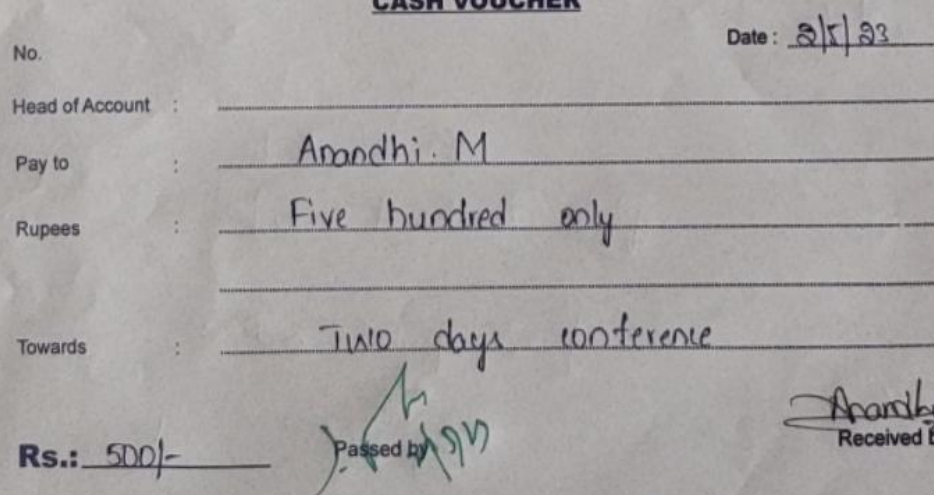 CASH VOUCHER
No.
Date : 2/5/23
Head of Account :
Pay to : Anandhi. M
Rupees : Five hundred only
Towards : Two days conference
Rs.: 500/-
Passed by
Anandhi
Received